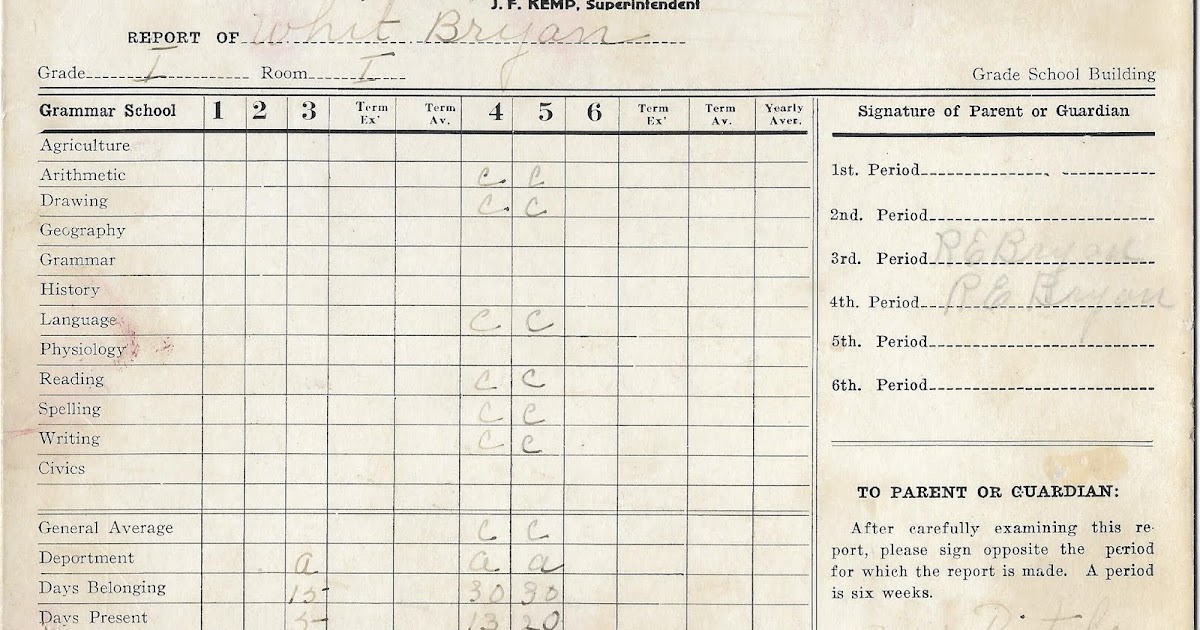 J. F. KEMP, Superintendent
REPORT OF Whit Bryan
Grade I Room I Grade School Building
Grammar School 1 2 3 Term Ex' Term Av. 4 5 6 Term Ex' Term Av. Yearly Aver.
Agriculture
Arithmetic C C
Drawing C C
Geography
Grammar
History
Language C C
Physiology
Reading C C
Spelling C C
Writing C C
Civics
General Average C C
Deportment a a a
Days Belonging 15 30 30
Days Present 5 13 20
Signature of Parent or Guardian
1st. Period
2nd. Period
3rd. Period R E Bryan
4th. Period R E Bryan
5th. Period
6th. Period
TO PARENT OR GUARDIAN:
After carefully examining this re-
port, please sign opposite the period
for which the report is made. A period
is six weeks.